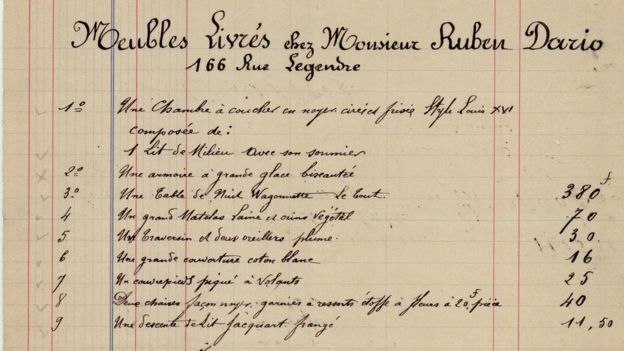 Meubles Livrés chez Monsieur Ruben Dario
166 Rue Legendre
1º Une Chambre à coucher en noyer ciré et frisé Style Louis XVI
composée de:
1 Lit de Milieu avec son sommier
2º Une armoire à grande glace biseautée
3º Une Table de Nuit Wagonnette Le Tout. 380 f
4 Un grand Matelas Laine et crins Végétal 70
5 Un Traversin et deux oreillers plume. 30.
6 Une grande couverture coton blanc 16
7 Un couvrepieds piqué à Volants 25
8 Deux chaises façon noyer garnies à ressorts étoffe à fleurs à 20 F pièce 40
9 Une descente de Lit Jacquart frangé 11,50